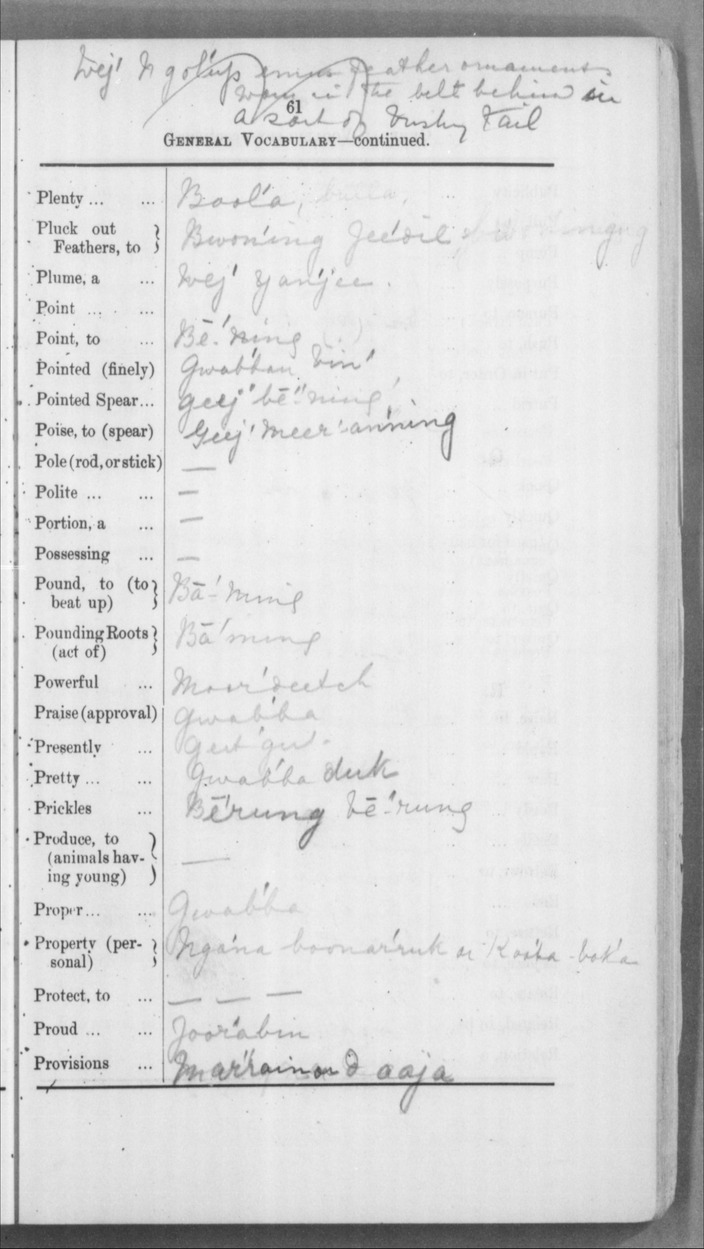 Wej' Ngol'up emu feather ornaments
worn in the belt behind in
a sort of bushy tail
61
GENERAL VOCABULARY—continued.
Plenty ... ... Bool'a, bulla,
Pluck out Feathers, to Bwon'ing jee'dil
Plume, a ... Wej' yan'jee.
Point ... ...
Point, to ... Bē'ning ( )
Pointed (finely) Gwab'ban bin'
Pointed Spear... geej' bē'ning'
Poise, to (spear) Geej' meer'an'ning
Pole (rod, or stick) —
Polite ... ... —
Portion, a ... —
Possessing ... —
Pound, to (to beat up) Bā'ming
Pounding Roots (act of) Bā'ming
Powerful ... Moor'deetch
Praise (approval) Gwab'ba
Presently ...
Pretty ... ... Gwab'ba duk
Prickles ... Bē'rung bē'rung
Produce, to (animals having young) —
Proper ... ... Gwab'ba
Property (personal) Ngan'a boonar'ruk or Koota-bok'a
Protect, to ... — — —
Proud ... ... Joor'abin
Provisions ... Mar'rain or D aaja